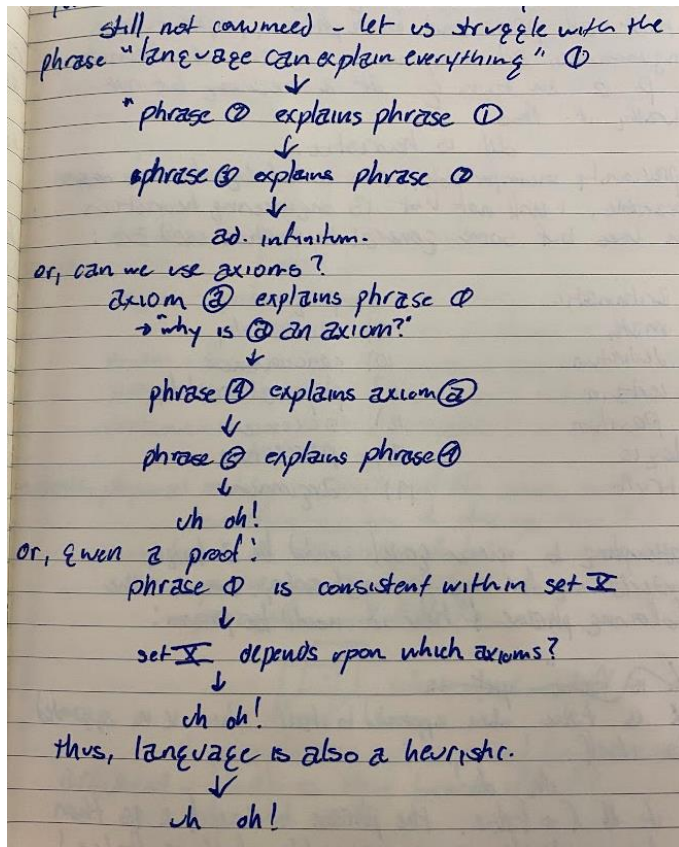 still not convinced - let us struggle with the
phrase "language can explain everything" ①
↓
"phrase ② explains phrase ①
↓
phrase ③ explains phrase ②
↓
ad. infinitum.
or, can we use axioms?
axiom ⓐ explains phrase ①
→ "why is ⓐ an axiom?"
↓
phrase ④ explains axiom ⓐ
↓
phrase ⑤ explains phrase ④
↓
uh oh!
or, given a proof:
phrase ① is consistent within set X
↓
set X depends upon which axioms?
↓
uh oh!
thus, language is also a heuristic.
↓
uh oh!